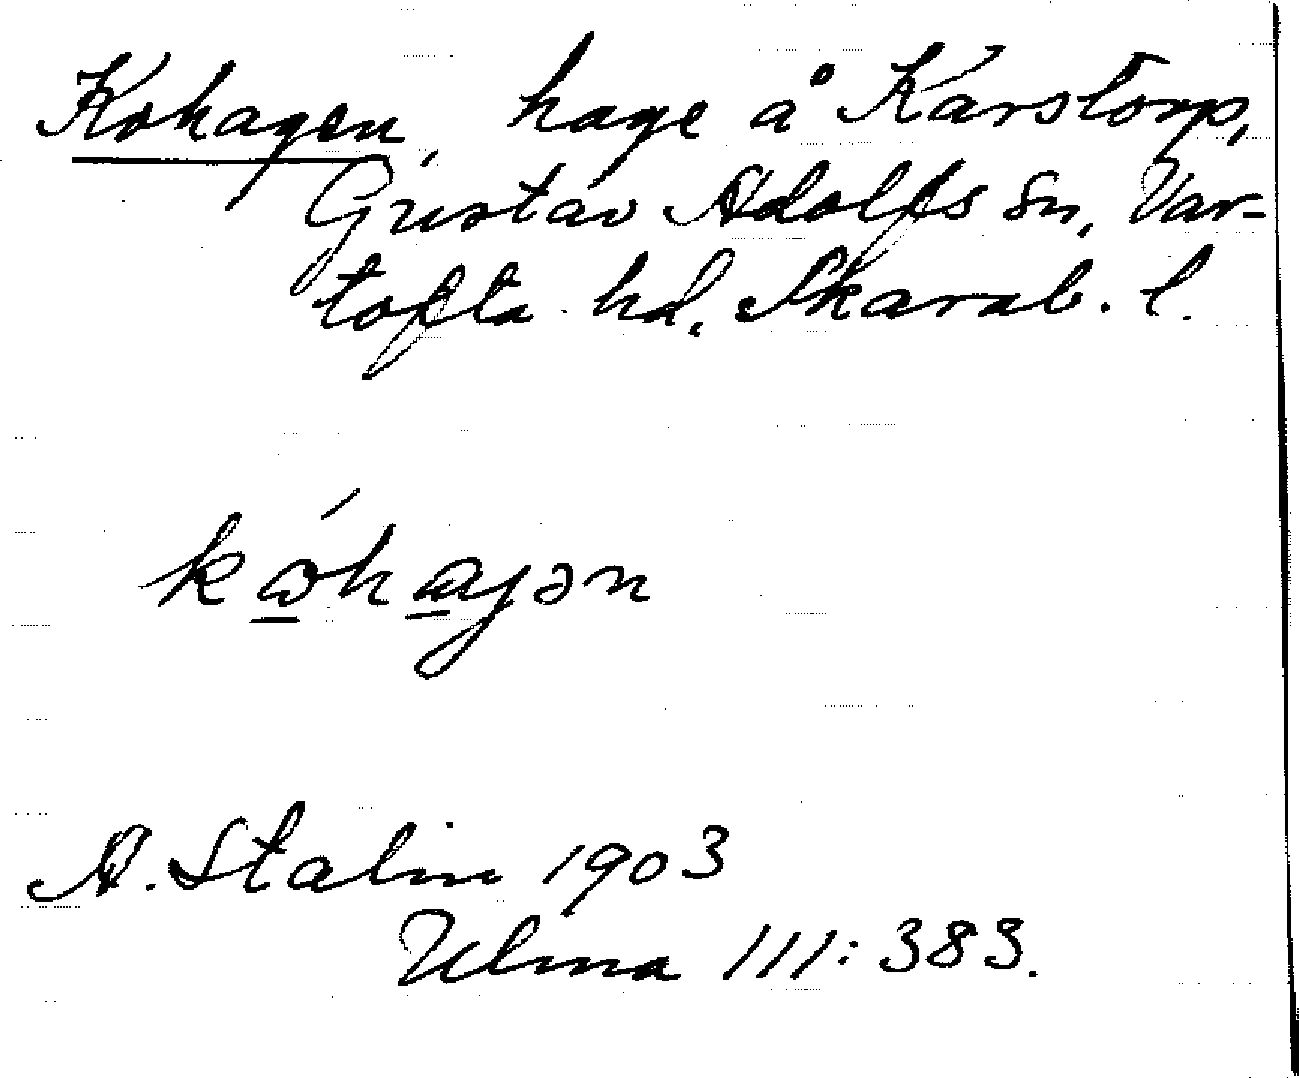 Kohagen, hage å Karstorp,
Gustav Adolfs sn, Var-
tofta hd, Skarab. l.
kóhagən
A. Stalin 1903
Ulma 111:383.